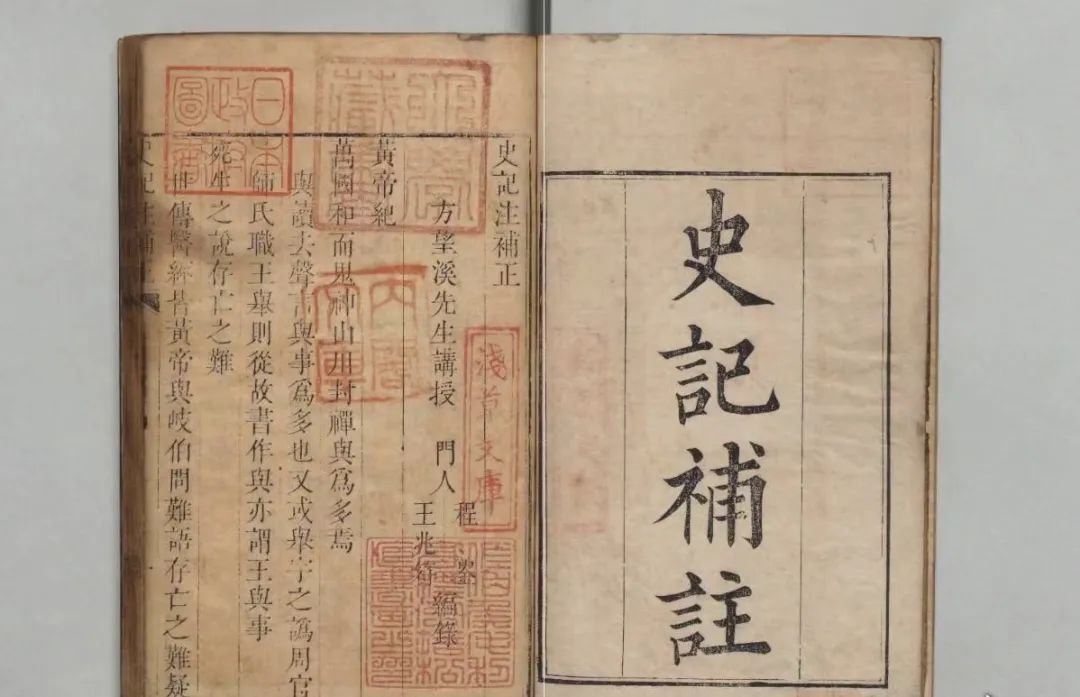 史記補註
史記注補正
方望溪先生講授 門人 程崟 王兆符 編錄
黃帝紀
萬國和而鬼神山川封禪與爲多焉
與讀去聲言與事爲多也又或舉字之譌周官
師氏職王舉則從故書作與亦謂王與事
死生之說存亡之難
傳醫經皆黃帝與岐伯問難語存亡之難疑
史記注補正
日本政府圖書
內閣文庫
淺草文庫